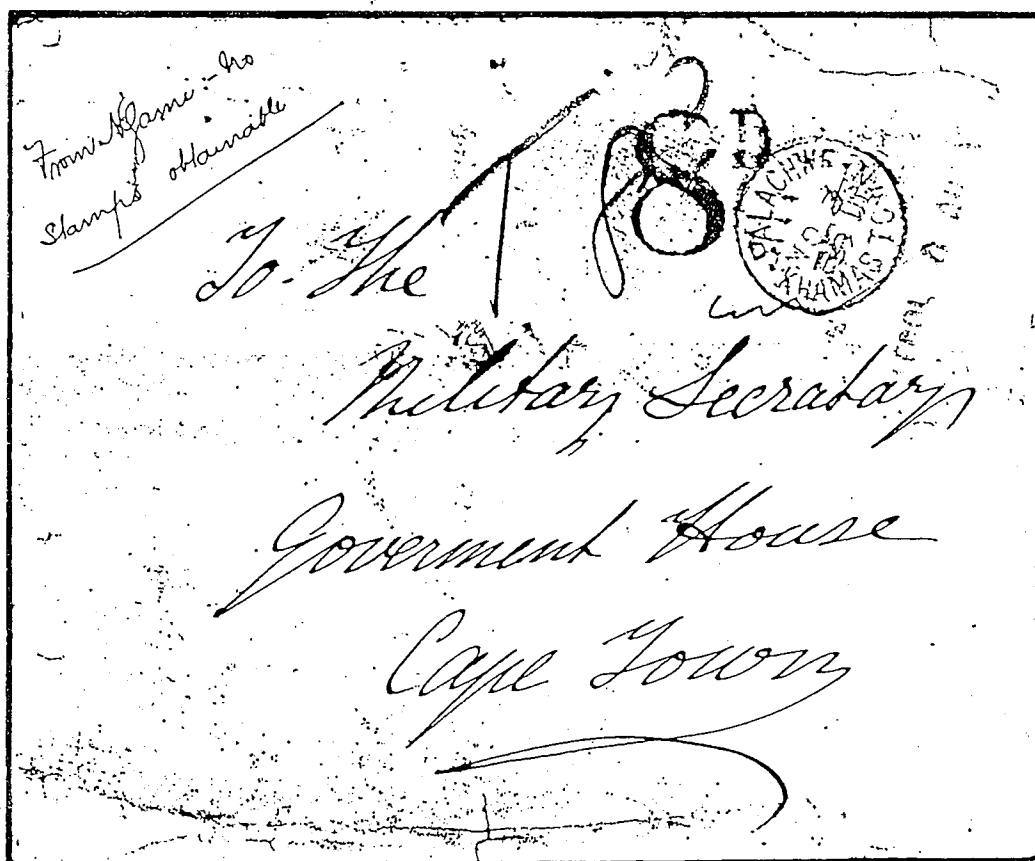 From Ngami - No
Stamps obtainable
T 8D
PALACHWE KHAMAS TOWN
To The
Military Secratary
Goverment House
Cape Town